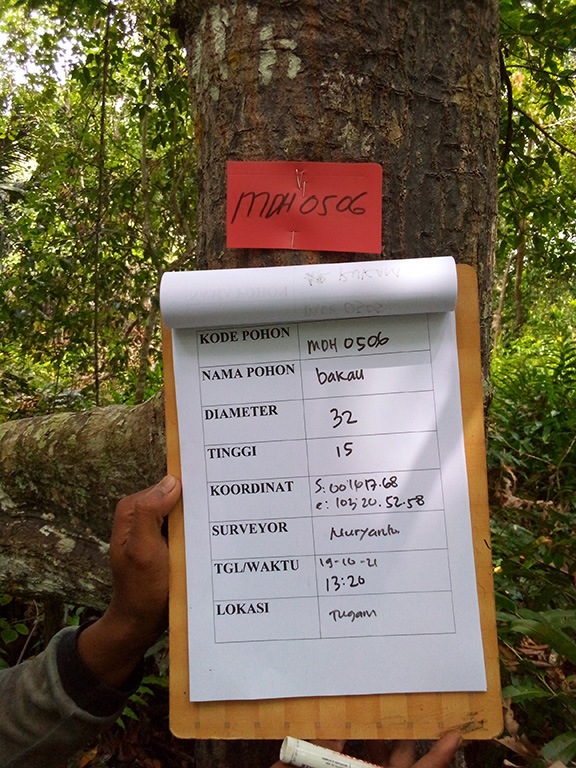 MDH 0506
KODE POHON MDH 0506
NAMA POHON bakau
DIAMETER 32
TINGGI 15
KOORDINAT
e: 103; 20. 52.58
SURVEYOR Nuryanto
TGL/WAKTU 19-10-21
13:20
LOKASI Tugam